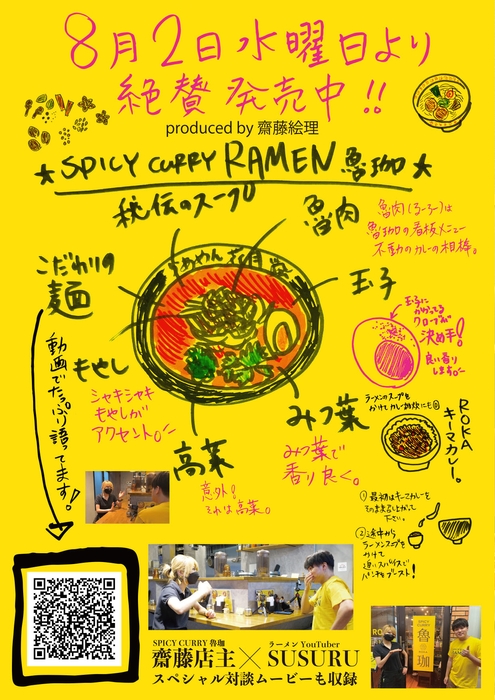 8月2日水曜日より
絶賛発売中!!
produced by 齋藤絵理
★SPICY CURRY RAMEN 魯珈★
秘伝のスープ
魯肉
魯肉(ろーろー)は
魯珈の看板メニュー
不動のカレーの相棒。
こだわりの
麺
らぁめん
玉子
玉子に
かかってる
クローブが
決め手!
良い香り
します。
動画でたっぷり語ってます!
もやし
シャキシャキ
もやしが
アクセント。
高菜
意外?
それは高菜。
みつ葉
みつ葉で
香り良く。
ラーメンのスープを
かけてカレー雑炊にも
ROKA
キーマカレー。
①最初はキーマカレーを
そのまま召し上がって
下さい。
②途中から
ラーメンスープを
かけて
追いスパイスで
パンチをブースト!
SPICY CURRY 魯珈
齋藤店主
×
ラーメン YouTuber
SUSURU
スペシャル対談ムービーも収録
SPICY
CURRY
魯
珈